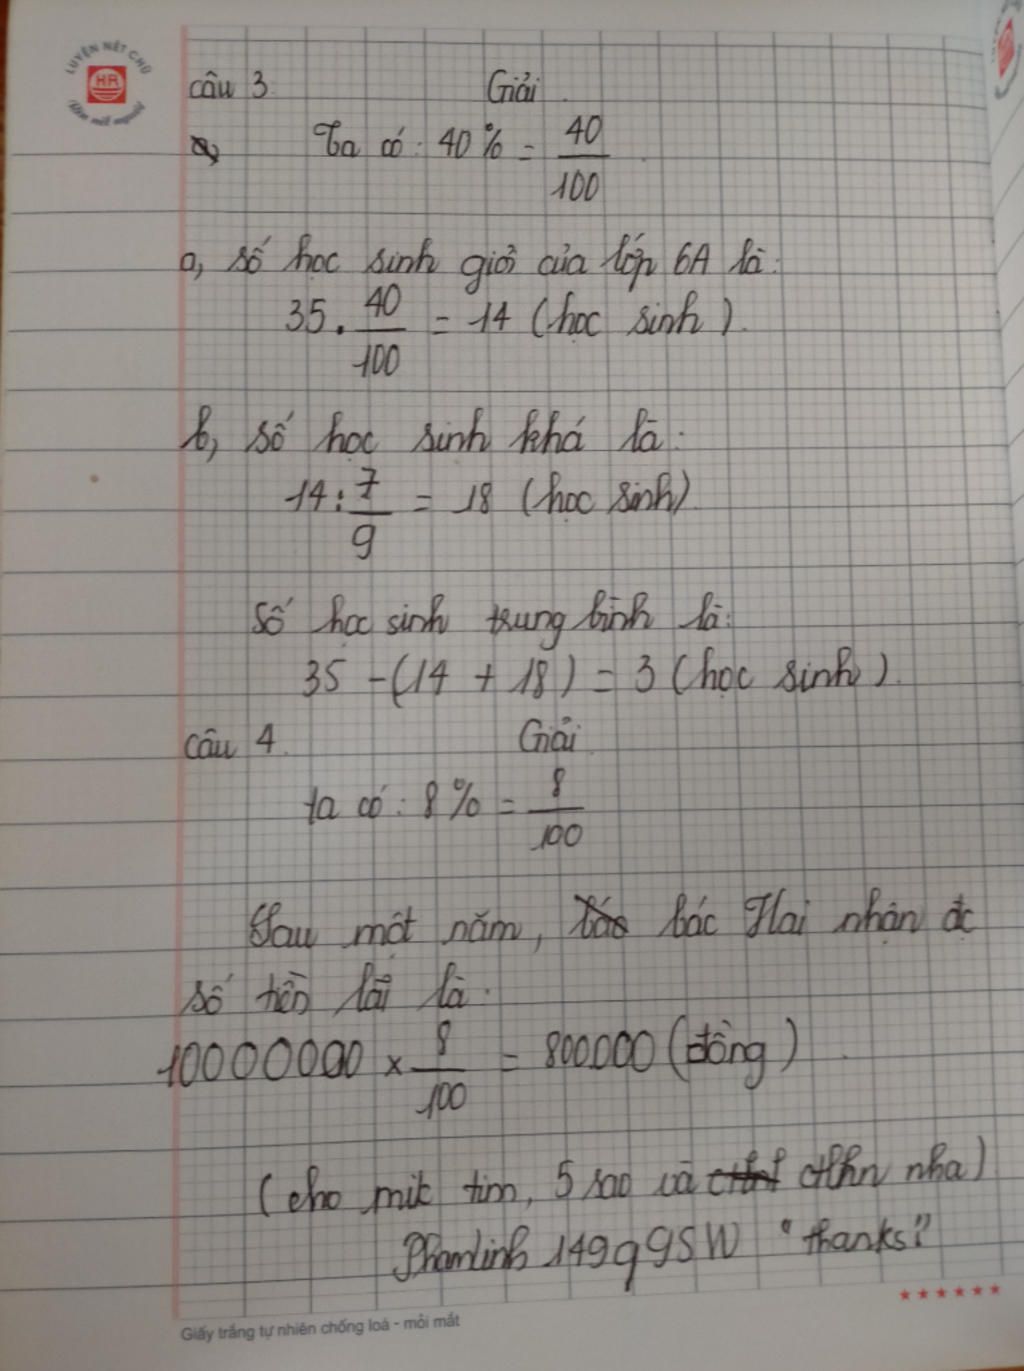 LUYỆN NÉT CHỮ
HR
câu 3 Giải
Ta có: 40% = 40/100
a, số học sinh giỏi của lớp 6A là:
35 . 40/100 = 14 (học sinh).
b, số học sinh khá là:
14 : 7/9 = 18 (học sinh)
Số học sinh trung bình là:
35 - (14 + 18) = 3 (học sinh).
câu 4 Giải
ta có: 8% = 8/100
Sau một năm, bác Hai nhận đc
số tiền lãi là:
10000000 x 8/100 = 800000 (đồng).
(cho mik tim, 5 sao và ctlhn nha)
Phamlinh149ggSW "thanks"
Giấy trắng tự nhiên chống loá - mỏi mắt